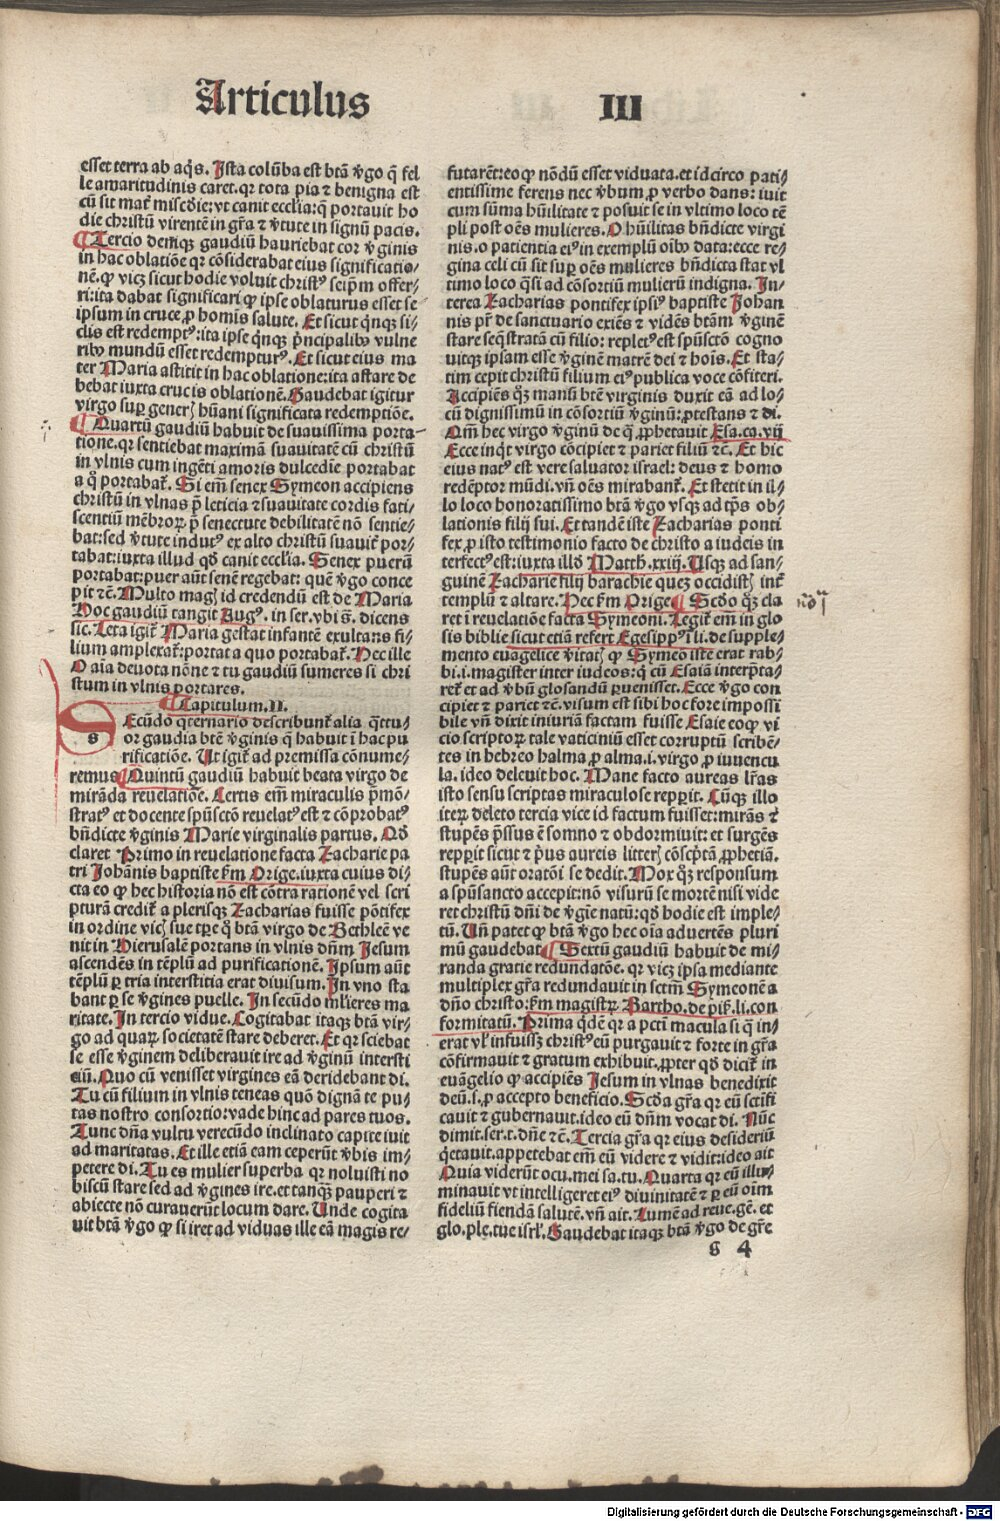 Articulus III
esset terra ab aq̄s. Ista colūba est btā v̄go q̄ fel
le amaritudinis caret. qr tota pia ⁊ benigna est
cū sit mat̄ misc̄die: vt canit eccl̄ia: q̄ portauit ho
die christū virentē in gr̄a ⁊ v̄tute in signū pacis.
¶ Tercio deniqꝫ gaudiū hauriebat cor v̄ginis
in hac oblatiōe qr cōsiderabat eius significatio⸗
nē. ꝙ vicꝫ sicut hodie voluit christꝰ seip̄m offer⸗
ri: ita dabat significari ꝙ ipse oblaturus esset se
ipsum in cruce ꝓ homīs salute. Et sicut qn̄qꝫ si⸗
clis est redemptꝰ: ita ipse qn̄qꝫ p̄ncipalibꝰ vulne
ribꝰ mundū esset redempturꝰ. Et sicut eius ma
ter Maria astitit in hac oblatione: ita astare de
bebat iuxta crucis oblationē. Gaudebat igitur
virgo suꝑ generꝭ hūani significata redemptiōe.
¶ Quartū gaudiū habuit de suauissima porta⸗
tione. qr sentiebat maximā suauitatē cū christū
in vlnis cum ingēti amoris dulcedīe portabat
a q̊ portabat̄. Si em̄ senex Symeon accipiens
christū in vlnas p̄ leticia ⁊ suauitate cordis fati⸗
scentiū mēbroꝝ p̄ senectute debilitatē nō sentie⸗
bat: sed v̄tute indutꝰ ex alto christū suauit̄ por⸗
tabat: iuxta illud qd̄ canit eccl̄ia. Senex puerū
portabat: puer aūt senē regebat: quē v̄go conce
pit ⁊c̄. Multo magꝭ id credendū est de Maria
Hoc gaudiū tangit Augꝰ. in ser. vbi s̄. dicens
sic. Leta igit̄ Maria gestat infantē exultans fi⸗
lium amplexat̄: portat a quo portabat̄. Hec ille
O aīa deuota nōne ⁊ tu gaudiū sumeres si chri
stum in vlnis portares.
¶ Capitulum. II.
s Ecūdo qternario describunt̄ alia q̄ttu⸗
or gaudia btē v̄ginis q̄ habuit ī hac pu
rificatiōe. Ut igit̄ ad premissa cōnume⸗
remus ¶ Quintū gaudiū habuit beata virgo de
mirāda reuelatiōe. Certis em̄ miraculis p̄mō⸗
stratꝰ et docente spūsctō reuelatꝰ est ⁊ cōprobatꝰ
bn̄dicte v̄ginis Marie virginalis partus. Qd̄
claret Primo in reuelatione facta Zacharie pa
tri Johānis baptiste ẜm Orige. iuxta cuius di⸗
cta eo ꝙ hec historia nō est cōtra rationē vel scri
pturā credit̄ a plerisqꝫ Zacharias fuisse pōtifex
in ordine vicꝭ sue tꝑe q̊ btā virgo de Bethleē ve
nit in Hierusalē portans in vlnis dn̄m Jesum
ascendēs in tēplū ad purificationē. Ipsum aūt
tēplū ꝑ tria interstitia erat diuisum. In vno sta
bant ꝑ se v̄gines puelle. In secūdo mulieres ma
ritate. In tercio vidue. Cogitabat itaqꝫ btā vir⸗
go ad quaꝝ societatē stare deberet. Et qr sciebat
se esse v̄ginem deliberauit ire ad v̄ginū intersti
ciū. Quo cū venisset virgines eā deridebant di.
Tu cū filium in vlnis teneas quō digna te pu⸗
tas nostro consortio: vade hinc ad pares tuos.
Tunc dn̄a vultu verecūdo inclinato capite iuit
ad maritatas. Et ille etiā eam ceperūt v̄bis im⸗
petere di. Tu es mulier superba qr noluisti no
biscū stare sed ad v̄gines ire. et tanqꝫ pauperi ⁊
abiecte nō curauerūt locum dare. Unde cogita
uit btā v̄go ꝙ si iret ad viduas ille eā magis re⸗
futarēt: eo ꝙ nōdū esset viduata. et idcirco pati⸗
entissime ferens nec v̄bum ꝓ verbo dans: iuit
cum sūma hūilitate ⁊ posuit se in vltimo loco tē
pli post oēs mulieres. O hūilitas bn̄dicte virgi
nis. o patientia eiꝰ in exemplū oībꝰ data: ecce re⸗
gina celi cū sit suꝑ oēs mulieres bn̄dicta stat vl
timo loco qͣsi ad cōsortiū mulierū indigna. In⸗
terea Zacharias pontifex ipsiꝰ baptiste Johan
nis pr̄ de sanctuario exiēs ⁊ vidēs btām v̄ginē
stare seq̄stratā cū filio: repletꝰ est spūsctō cogno
uitqꝫ ipsam esse v̄ginē matrē dei ⁊ hoīs. Et sta⸗
tim cepit christū filium eiꝰ publica voce cōfiteri.
Accipiēs qꝫ manū btē virginis duxit eā ad lo⸗
cū dignissimū in cōsortiū v̄ginū: ꝓtestans ⁊ di.
Qm̄ hec virgo v̄ginū de q̄ ꝓphetauit Esa. ca. vij
Ecce inqͥt virgo cōcipiet ⁊ pariet filiū ⁊c̄. Et hic
eius natꝰ est vere saluator israel: deus ⁊ homo
redēptor mūdi. vn̄ oēs mirabant̄. Et stetit in il⸗
lo loco honoratissimo btā v̄go vsqꝫ ad tp̄s ob⸗
lationis filij sui. Et tandē iste Zacharias ponti
fex ꝓ isto testimonio facto de christo a iudeis in
terfectꝰ est: iuxta illd̄ Matth. xxiij. Usqꝫ ad san⸗
guinē Zacharie filij barachie quez occidistꝭ int̄
templū ⁊ altare. Hec ẜm Orige ¶ Scd̄o qꝫ cla
ret ī reuelatiōe facta Symeoni. Legit̄ em̄ in glo
sis biblie sicut etiā refert Egesippꝰ ī li. de supple⸗
mento euagelice v̄itatꝭ ꝙ Symeō iste erat rab⸗
bi. i. magister inter iudeos: q̄ cū Esaiā interp̄ta⸗
ret̄ et ad v̄bū glosandū ꝑuenisset. Ecce v̄go con
cipiet ⁊ pariet ⁊c̄. visum est sibi hoc fore impossi
bile vn̄ dixit iniuriā factam fuisse Esaie eo ꝙ vi
cio scriptoꝝ tale vaticiniū esset corruptū scribē⸗
tes in hebreo halma ꝓ alma. i. virgo ꝓ iuuencu
la. ideo deleuit hoc. Mane facto aureas lr̄as
isto sensu scriptas miraculose reꝑit. Cūqꝫ illo
iteꝝ deleto tercia vice id factum fuisset: mirās ⁊
stupēs p̄ssus ē somno ⁊ obdormiuit: et surgēs
reꝑit sicut ⁊ p̄us aureis litterꝭ cōscp̄tā ꝓphetiā.
stupēs aūt oratōi se dedit. Mox qꝫ responsum
a spūsancto accepit: nō visurū se mortē nisi vide
ret christū dn̄i de v̄gīe natū: qd̄ hodie est imple⸗
tū. Un̄ patet ꝙ btā v̄go hec oīa aduertēs pluri
mū gaudebat ¶ Sextū gaudiū habuit de mi⸗
randa gratie redundatōe. qr vicꝫ ipsa mediante
multiplex gr̄a redundauit in sctm̄ Symeonē a
dn̄o christo: ẜm magistꝝ Bartho. de pis. li. con
formitatū. Prima qͥdē qr a pctī macula si q̄ in⸗
erat vl̓ infuisꝫ christꝰ eū purgauit ⁊ forte in gr̄a
cōfirmauit ⁊ gratum exhibuit. ꝓpter qd̄ dicit̄ in
euāgelio ꝙ accipiēs Jesum in vlnas benedixit
deū. s. ꝓ accepto beneficio. Scd̄a gr̄a qr eū sctīfi
cauit ⁊ gubernauit. ideo eū dn̄m vocat di. Nūc
dimit. ser. t. dn̄e ⁊c̄. Tercia gr̄a qr eius desideriū
q̄etauit. appetebat em̄ eū videre ⁊ vidit: ideo ait
Quia viderūt ocu. mei sa. tu. Quarta qr eū illu⸗
minauit vt intelligeret eiꝰ diuinitatē ⁊ ꝑ eū oīm
fideliū fiendā salutē. vn̄ ait. Lumē ad reue. gē. et
glo. ple. tue isrl̓. Gaudebat itaqꝫ btā v̄go de gr̄e
g 4